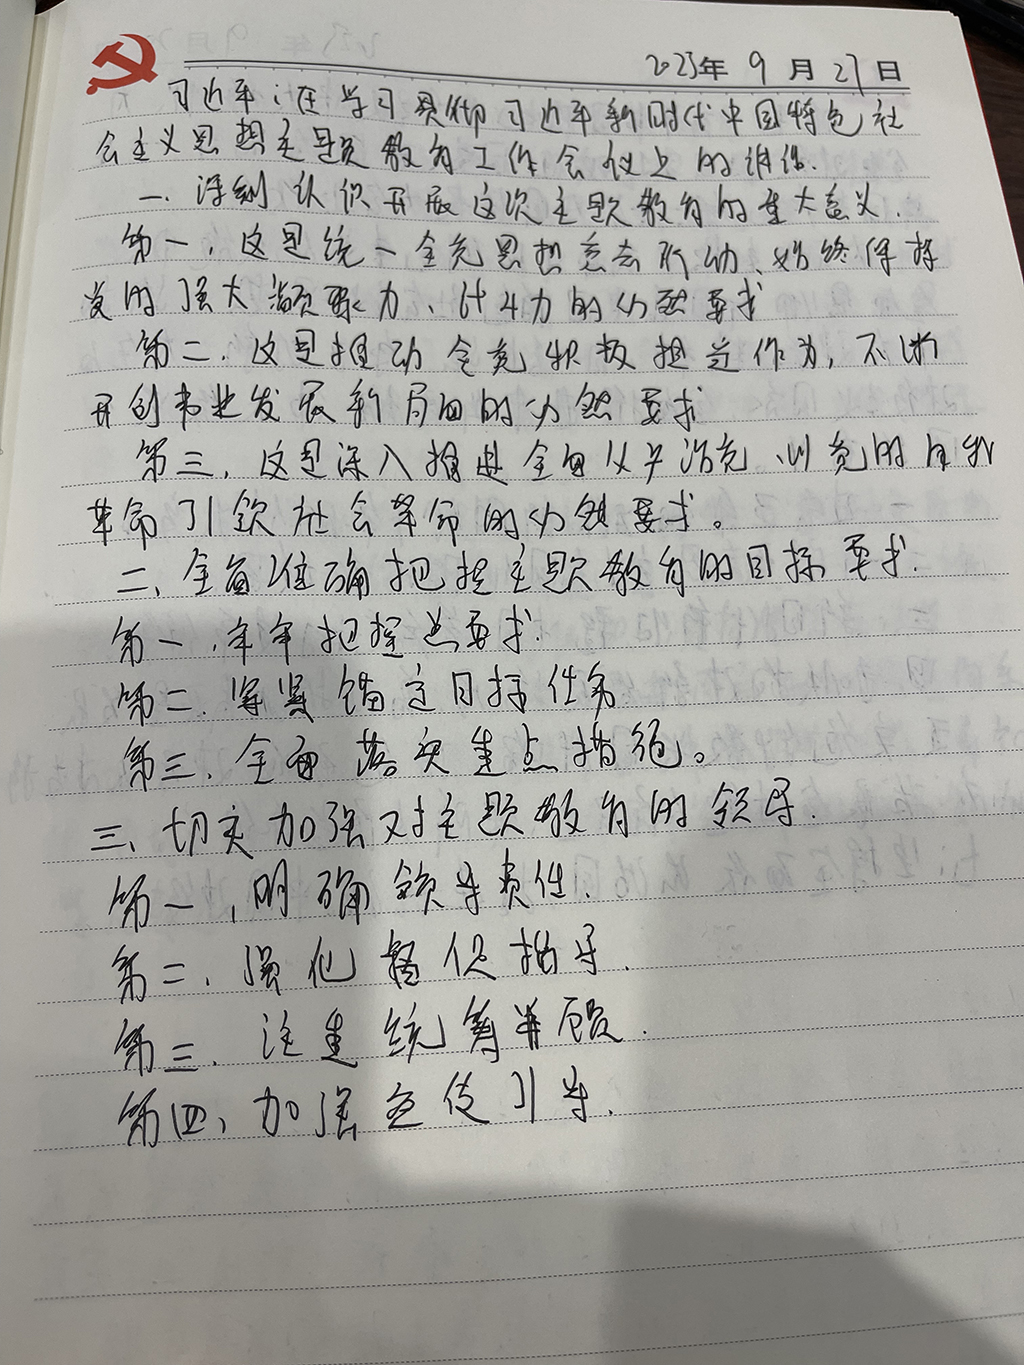 2023年 9 月 27 日
习近平：在学习贯彻习近平新时代中国特色社
会主义思想主题教育工作会议上的讲话.
一. 深刻认识开展这次主题教育的重大意义.
第一，这是统一全党思想意志行动、始终保持
党的强大凝聚力、战斗力的必然要求
第二. 这是推动全党积极担当作为，不断
开创事业发展新局面的必然要求
第三，这是深入推进全面从严治党、以党的自我
革命引领社会革命的必然要求。
二、全面准确把握主题教育的目标要求.
第一，牢牢把握总要求.
第二. 紧紧锚定目标任务
第三. 全面落实重点措施。
三、切实加强对主题教育的领导.
第一，明确领导责任.
第二. 强化督促指导.
第三. 注重统筹兼顾.
第四、加强宣传引导.